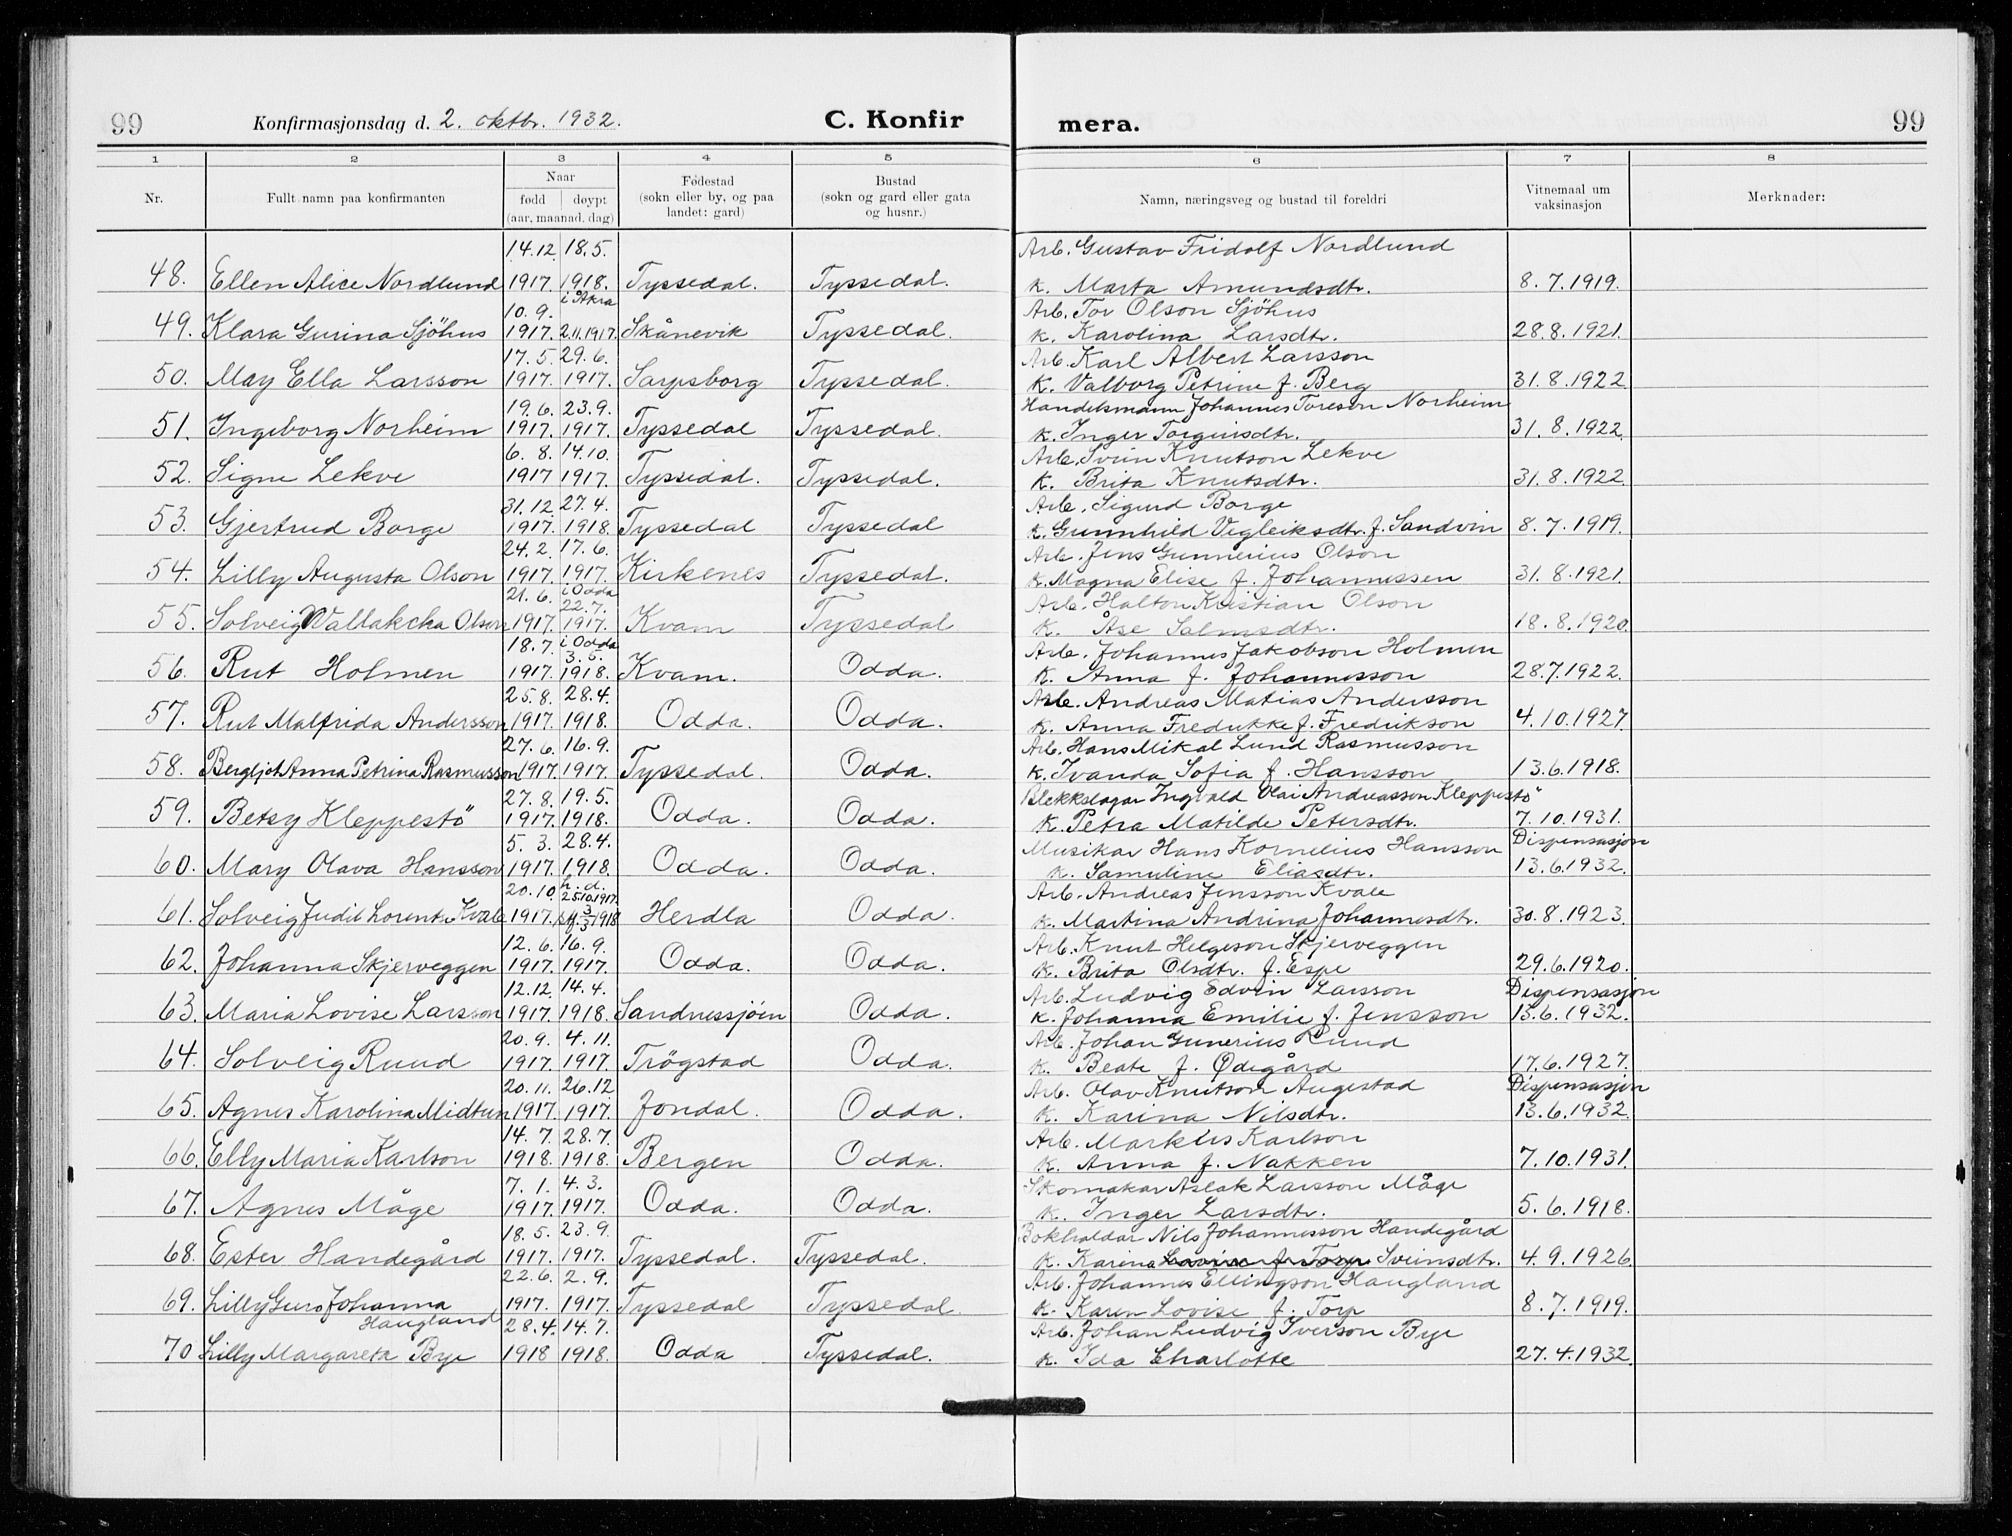 99 Konfirmasjonsdag d. 2. oktbr. 1932. C. Konfir mera. 99
1 2 3 4 5 6 7 8
Nr. Fullt namn paa konfirmanten Naar fødd døypt (aar, maanad, dag) Fødestad (sokn eller by, og paa landet: gard) Bustad (sokn og gard eller gata og husnr.) Namn, næringsveg og bustad til foreldri Vitnemaal um vaksinasjon Merknader:
14.12. 18.5. Arb. Gustav Fridolf Nordlund
48. Ellen Alice Nordlund 1917. 1918. Tyssedal. Tyssedal. k. Marta Amundsdtr. 8.7.1919.
10.9. i Åkra Arb. Tor Olson Sjöhus
49. Klara Gurina Sjöhus 1917. 2.11.1917. Skånevik Tyssedal. k. Karolina Larsdtr. 28.8.1921.
17.5. 29.6. Arb. Karl Albert Larsson
50. May Ella Larsson 1917. 1917. Sarpsborg Tyssedal. k. Valborg Petrine f. Berg 31.8.1922.
19.6. 23.9. Handelsmann Johannes Toreson Norheim
51. Ingeborg Norheim 1917. 1917. Tyssedal Tyssedal. k. Inger Torgeirsdtr. 31.8.1922.
6.8. 14.10. Arb. Svein Knutson Lekve
52. Signe Lekve 1917 1917. Tyssedal. Tyssedal. k. Brita Knutsdtr. 31.8.1922.
31.12. 27.4. Arb. Sigurd Borge
53. Gjertrud Borge 1917. 1918. Tyssedal Tyssedal k. Gunnhild Vegleiksdtr. f. Sandvin 8.7.1919.
24.2. 17.6. Arb. Jens Gunnerius Olson
54. Lilly Augusta Olson 1917. 1917. Kirkenes Tyssedal. k. Magna Elise f. Johannessen 31.8.1921.
21.6. i Odda 22.7. Arb. Halton Kristian Olson
55. Solveig Olson 1917. 1917. Kvam Tyssedal k. Åse Salmsdtr. 18.8.1920.
18.7. i Odda 3.5. Arb. Johannes Jakobson Holmen
56. Rut Holmen 1917. 1918. Kvam. Odda. k. Anna f. Johannesson 28.7.1922.
25.8. 28.4. Arb. Andreas Matias Andersson
57. Rut Malfrida Andersson 1917. 1918. Odda. Odda. k. Anna Fredrikke f. Fredrikson 4.10.1927.
27.6. 16.9. Arb. Hans Mikal Lund Rasmusson
58. Bergljot Anna Petrina Rasmusson 1917. 1917. Tyssedal. Odda. k. Ivanda Sofia f. Hansson 13.6.1918.
27.8. 19.5. Blekkslagar Ingvald Olai Andreasson Kleppestö
59. Betsy Kleppestö 1917. 1918. Odda. Odda. k. Petra Matilde Petersdtr. 7.10.1931.
5.3. 28.4. Musikar Hans Kornelius Hansson Dispensasjon
60. Mary Olava Hansson 1917. 1918. Odda. Odda. k. Samuline Eliasdtr. 13.6.1932.
20.10. h.d. 25.10.1917. Arb. Andreas Jensson Kvale
61. Solveig Judit Lorentse Kvale 1917. stf. 3/3 1918 Herdla Odda. k. Martina Andrina Johannesdtr. 30.8.1923.
12.6. 16.9. Arb. Knut Helgeson Skjerveggen
62. Johanna Skjerveggen 1917. 1917. Odda. Odda. k. Brita Olsdtr. f. Espe 29.6.1920.
12.12. 14.4. Arb. Ludvig Edvin Larsson Dispensasjon
63. Maria Lovise Larsson 1917. 1918. Sandnessjöen Odda. k. Johanna Emilie f. Jensson 13.6.1932.
20.9. 4.11. Arb. Johan Gunerius Ruud
64. Solveig Ruud 1917. 1917. Trögstad Odda. k. Beate f. Ødegård 17.6.1927.
20.11. 26.12 Arb. Olav Knutson Augestad Dispensasjon
65. Agnes Karolina Midtun 1917. 1917. Jondal. Odda. k. Karina Nilsdtr. 13.6.1932.
14.7. 28.7. Arb. Markus Karlson
66. Elly Maria Karlson 1918. 1918. Bergen Odda. k. Anna f. Nakken 7.10.1931.
7.1. 4.3. Skomakar Aslak Larsson Måge
67. Agnes Måge 1917. 1917. Odda. Odda. k. Inger Larsdtr. 5.6.1918.
18.5. 23.9. Bokhaldar Nils Johannesson Handegård
68. Ester Handegård 1917. 1917. Tyssedal. Tyssedal. k. Karina Lovise f. Torp Sveinsdtr. 4.9.1926.
22.6. 2.9. Arb. Johannes Ellingson Haugland
69. Lilly Guro Johanna Haugland 1917. 1917. Tyssedal Tyssedal. k. Karen Lovise f. Torp 8.7.1919.
28.4. 14.7. Arb. Johan Ludvig Iverson Bye
70 Lilly Margareta Bye 1918 1918. Odda Tyssedal. k. Ida Charlotte 27.4.1932.